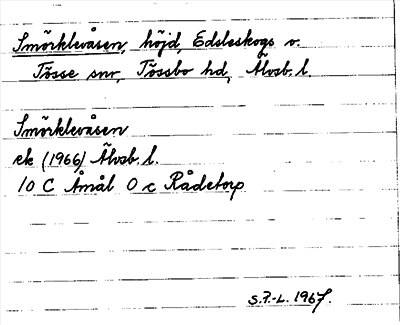 Smörklevåsen, höjd, Edsleskogs o.
Tösse snr, Tössbo hd, Älvsb. l.
Smörklevåsen
ek (1966) Älvsb. l.
10 C Åmål O c Rådetorp
S.F.-L. 1967.